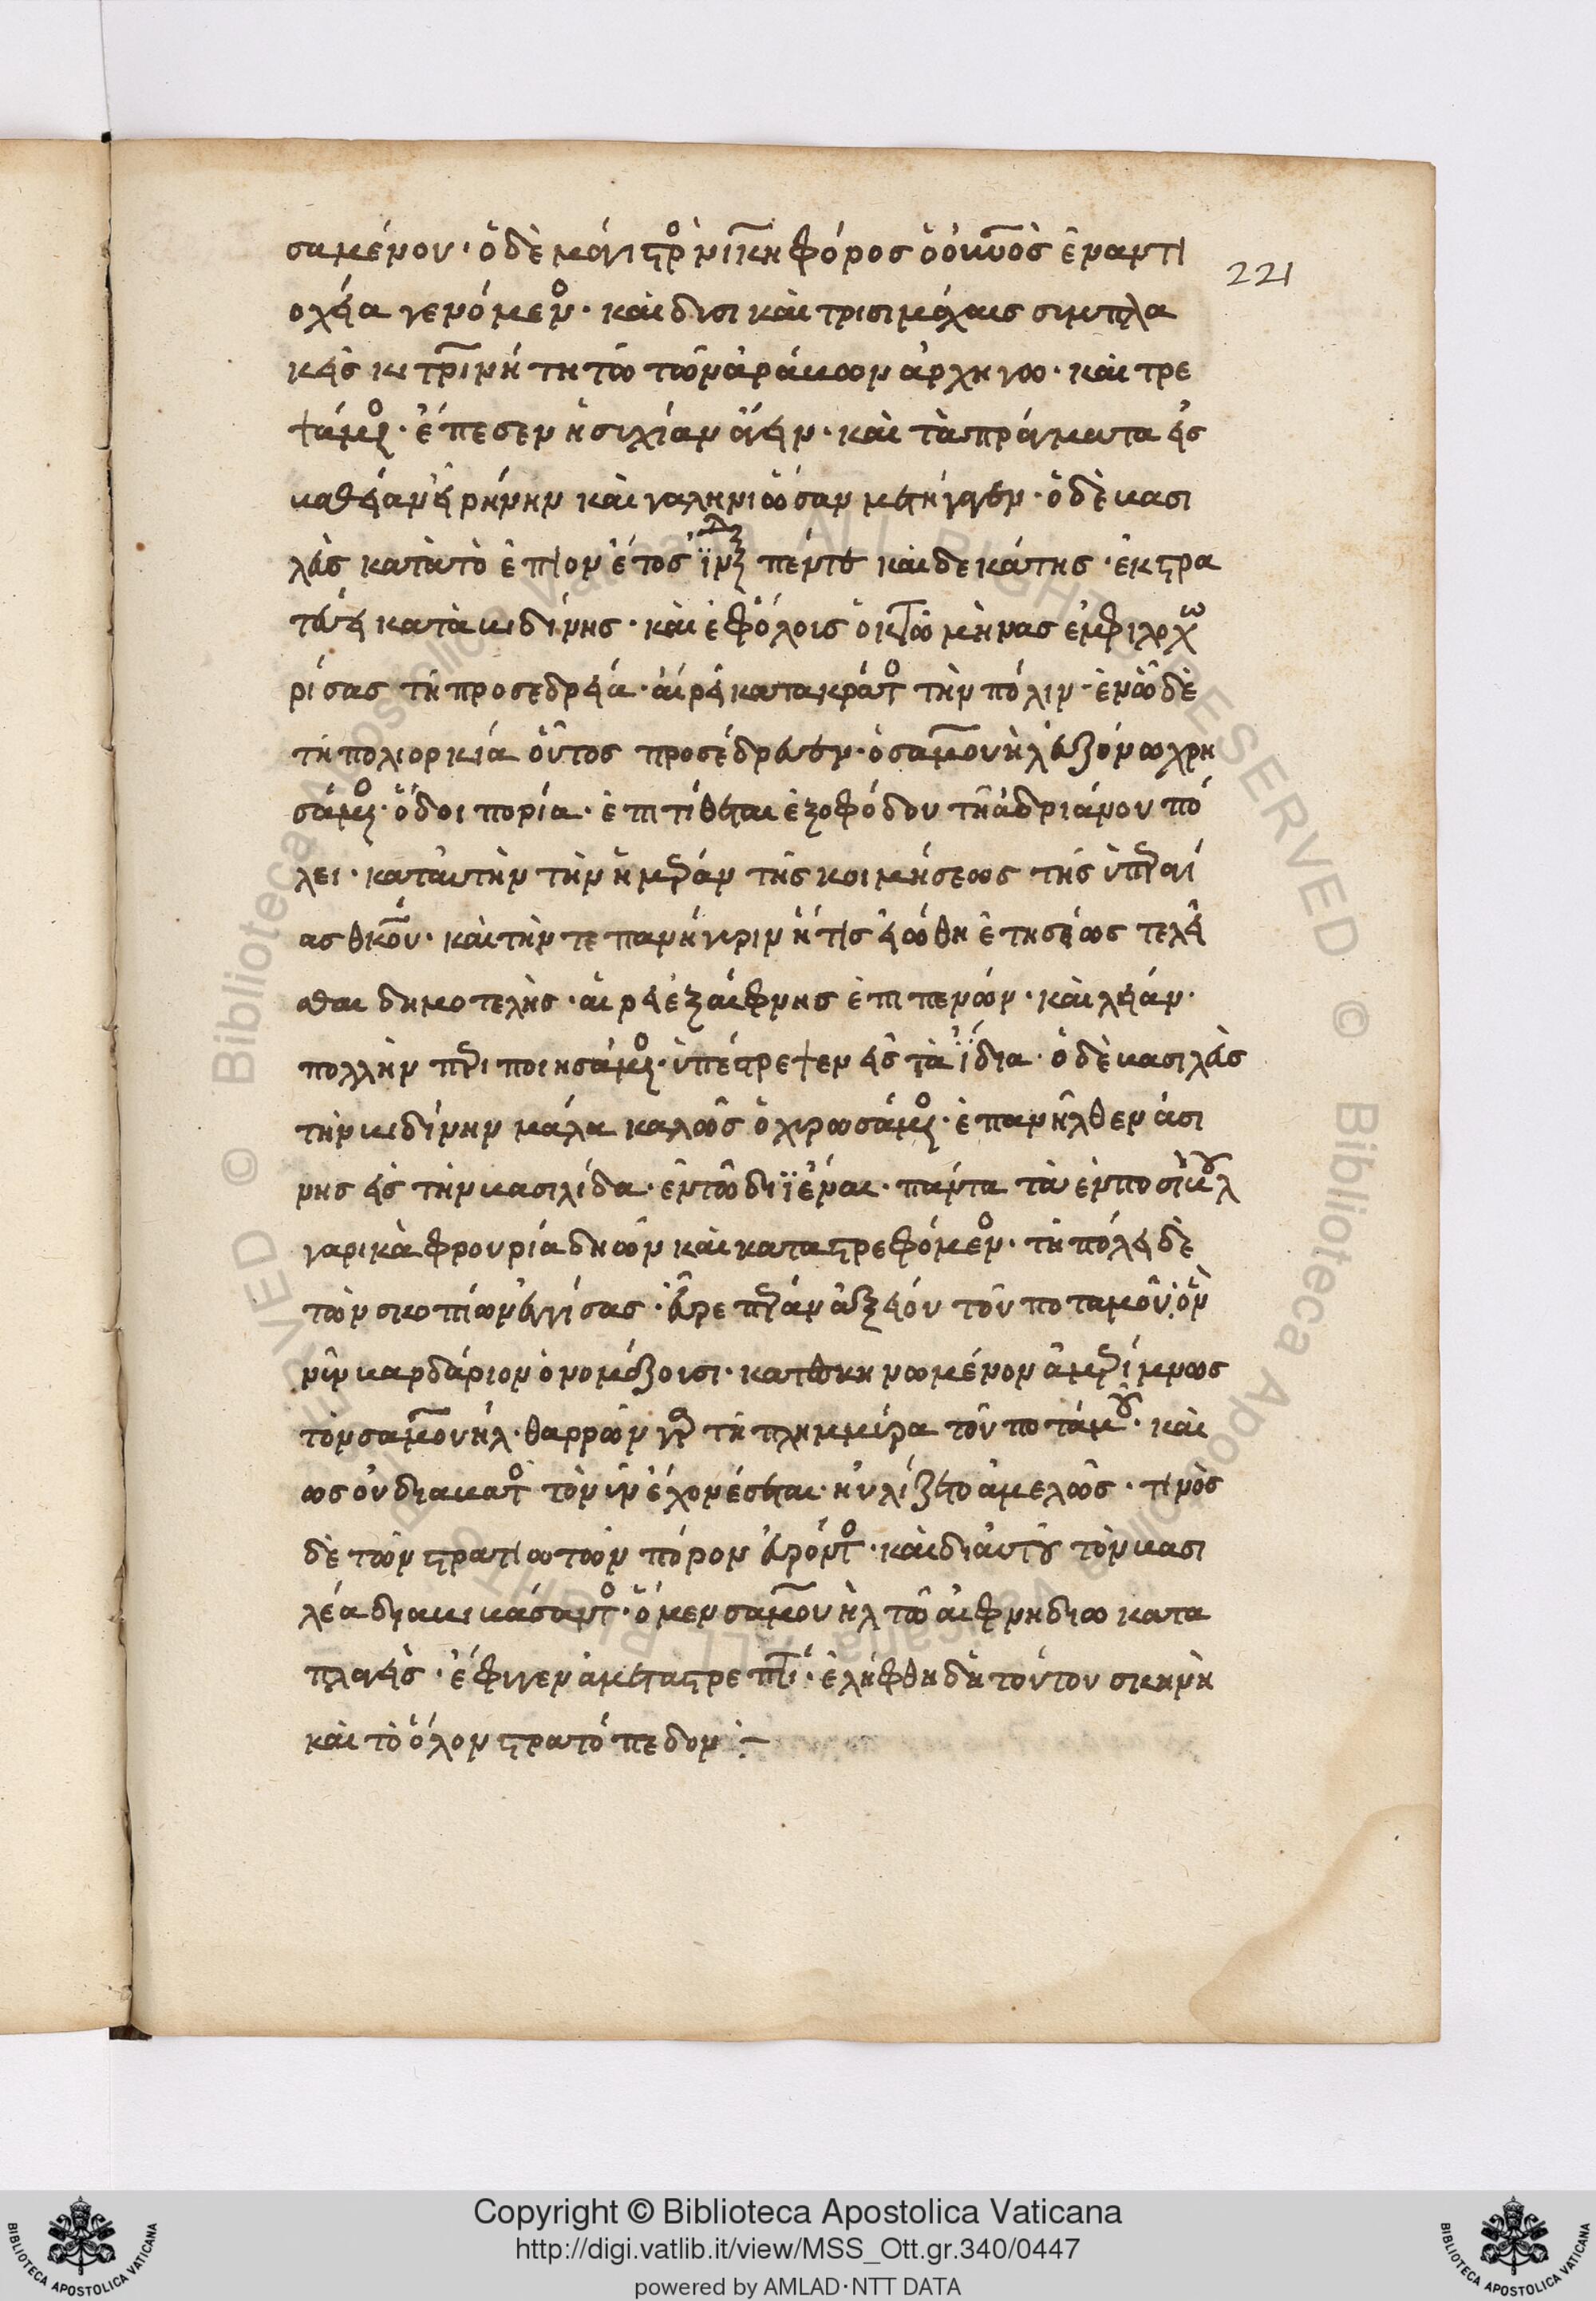 σαμένου· ὁ δὲ μάγιστρος νικηφόρος ὁ οὐρανὸς ἐν ἀντι
οχεία γενόμενος· καὶ δυσὶ καὶ τρισὶ μάχαις συμπλα
κεὶς κιτρινίτη τῶ τῶν ἀράβων ἀρχηγῶ· καὶ τρε
ψάμενος· ἔπεσεν ἡσυχίαν ἄγειν· καὶ τὰ πράγματα εἰς
βαθεῖαν εἰρήνην καὶ γαληνιῶσαν μετήγαγεν· ὁ δὲ βασι
λεὺς κατὰ τὸ ἐπιὸν ἔτος ἰνδ πέντε καὶ δεκάτης· ἐκστρα
τεύει κατὰ βιδίνης· καὶ ἐφ' ὅλοις ὀκτὼ μῆνας ἐμφιλοχω
ρίσας τῆ προσεδρεία· αἱρεῖ κατακράτος τὴν πόλιν· ἐν ὧ δὲ
τῆ πολιορκία οὗτος προσέδρευεν· ὁ σαμουὴλ εὐζώνω χρη
σάμενος ὁδοιπορία· ἐπιτίθεται ἐξ ἐφόδου τῆ ἀδριάνου πό
λει· κατ' αὐτὴν τὴν ἡμέραν τῆς κοιμήσεως τῆς ὑπεραγί
ας θκου· καὶ τήν τε πανήγυριν ἥτις εἰώθη ἐτησέως τελεῖ
σθαι δημοτελὴς· αἱρεῖ ἐξαίφνης ἐπιπεσών· καὶ λείαν·
πολλὴν περιποιησάμενος· ὑπέστρεψεν εἰς τὰ ἴδια· ὁ δὲ βασιλεὺς
τὴν βιδίνην μάλα καλῶς ὀχυρωσάμενος· ἐπανῆλθεν ἀσι
νὴς εἰς τὴν βασιλίδα· ἐν τῶ διϊέναι· πάντα τὰ ἐν ποσὶ βουλ
γαρικὰ φρουρία δηῶν καὶ καταστρεφόμενος· τῆ πόλει δὲ
τῶν σκοπίων ἐγγίσας· εὗρε πέραν ἀξειοῦ τοῦ ποταμοῦ· ὃν
νῦν βαρδάριον ὀνομάζουσι· κατεσκηνωμένον ἀμερίμνως
τὸν σαμουήλ· θαρρῶν γὰρ τῆ πλημμύρα τοῦ ποτάμου· καὶ
ὡς οὐ διαβατὸς τὸ νῦν ἔχον ἔσται· ηὐλίζετο ἀμελῶς· τινὸς
δὲ τῶν στρατιωτῶν πόρον εὑρόντος· καὶ δι' αὐτοῦ τὸν βασι
λέα διαβιβάσαντος· ὁ μὲν σαμουὴλ τῶ αἰφνηδίω κατα
πλαγεὶς· ἔφυγεν ἀμεταστρεπτί· ἐλήφθη δὴ τούτου σκηνὴ
καὶ τὸ ὅλον στρατόπεδον :–
221
Copyright © Biblioteca Apostolica Vaticana
http://digi.vatlib.it/view/MSS_Ott.gr.340/0447
powered by AMLAD·NTT DATA